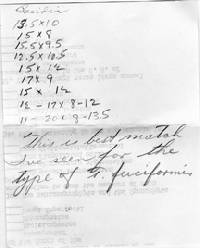 13.5 x 10
15 x 8
15.5 x 9.5
12.5 x 10.5
15 x 12
17 x 9
15 x 12
12 - 17 x 8 - 12
11 - 20 x 8 - 13.5
This is best matal
I've seen for the
type of G. fuciformis